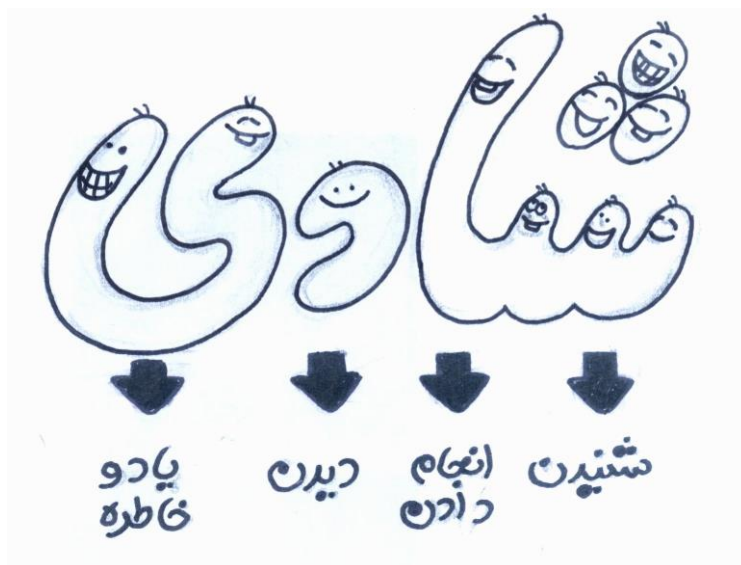 شادی
شنیدن
انجام
دادن
دیدن
یاد و
خاطره